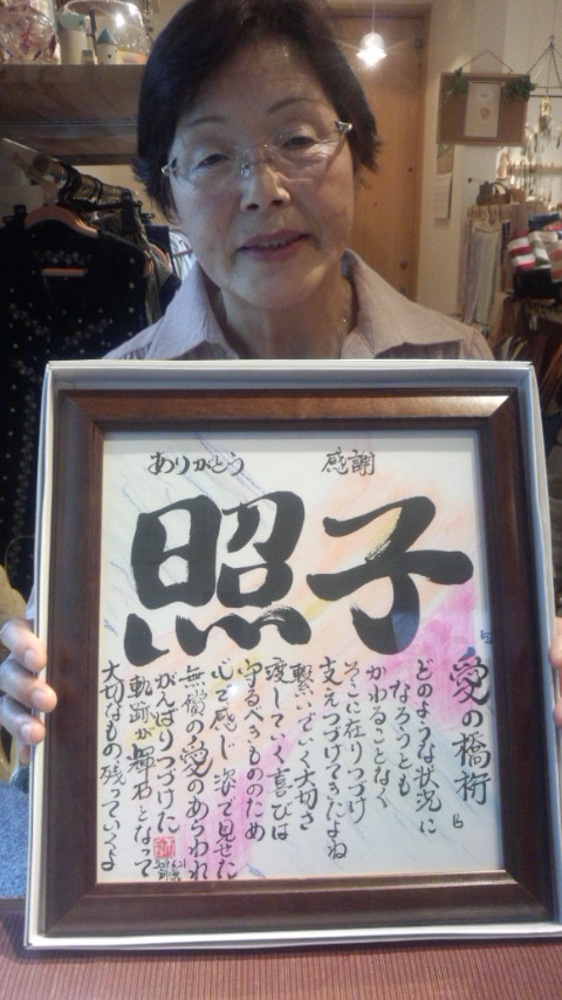 ありがとう 感謝
照子
愛の橋桁
どのような状況に
なろうとも
かわることなく
そこに在りつづけ
支えつづけてきたよね
繋いでいく大切さ
渡していく喜びは
守るべきもののため
心で感じ 姿で見せた
無償の愛のあらわれ
がんばりつづけた
軌跡が輝石となって
大切なもの残っていくよ